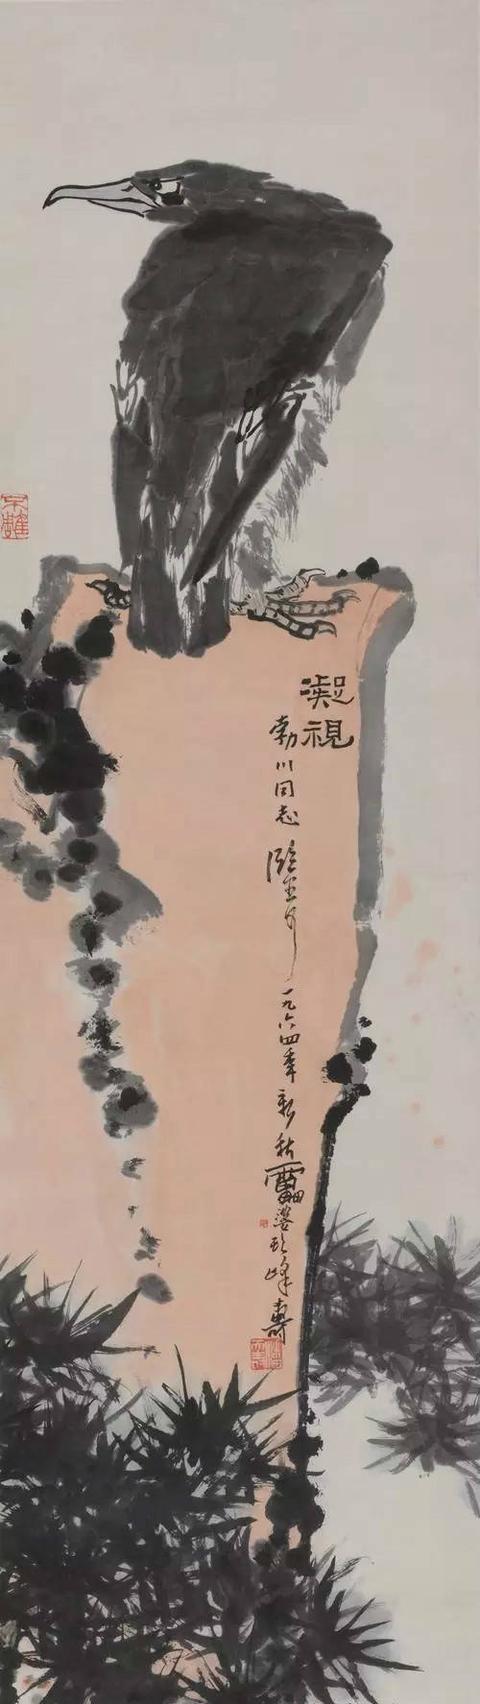 凝視
勃川同志正 一九六四年新秋 靁婆頭峰壽
不雕